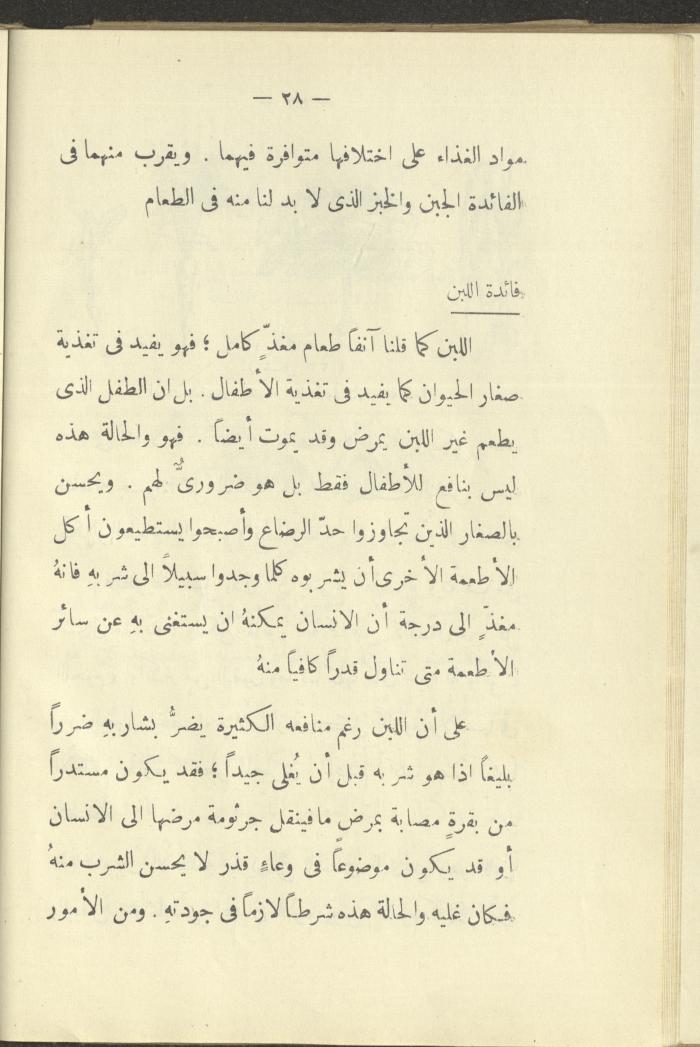 — ٢٨ —
مواد الغذاء على اختلافها متوافرة فيهما . ويقرب منهما فى
الفائدة الجبن والخبز الذى لا بد لنا منه فى الطعام
فائدة اللبن
اللبن كما قلنا آنفاً طعام مغذٍّ كامل ؛ فهو يفيد فى تغذية
صغار الحيوان كما يفيد فى تغذية الأطفال . بل ان الطفل الذى
يطعم غير اللبن يمرض وقد يموت أيضاً . فهو والحالة هذه
ليس بنافع للأطفال فقط بل هو ضرورىٌّ لهم . ويحسن
بالصغار الذين تجاوزوا حدّ الرضاع وأصبحوا يستطيعون أكل
الأطعمة الأخرى أن يشربوه كلما وجدوا سبيلاً الى شربهِ فانهُ
مغذٍّ الى درجة أن الانسان يمكنهُ ان يستغنى بهِ عن سائر
الأطعمة متى تناول قدراً كافياً منهُ
على أن اللبن رغم منافعه الكثيرة يضرُّ بشاربهِ ضرراً
بليغاً اذا هو شربه قبل أن يُغلى جيداً ؛ فقد يكون مستدراً
من بقرةٍ مصابة بمرضٍ ما فينقل جرثومة مرضها الى الانسان
أو قد يكون موضوعاً فى وعاءٍ قذر لا يحسن الشرب منهُ
فكان غليه والحالة هذه شرطاً لازماً فى جودتهِ . ومن الأمور